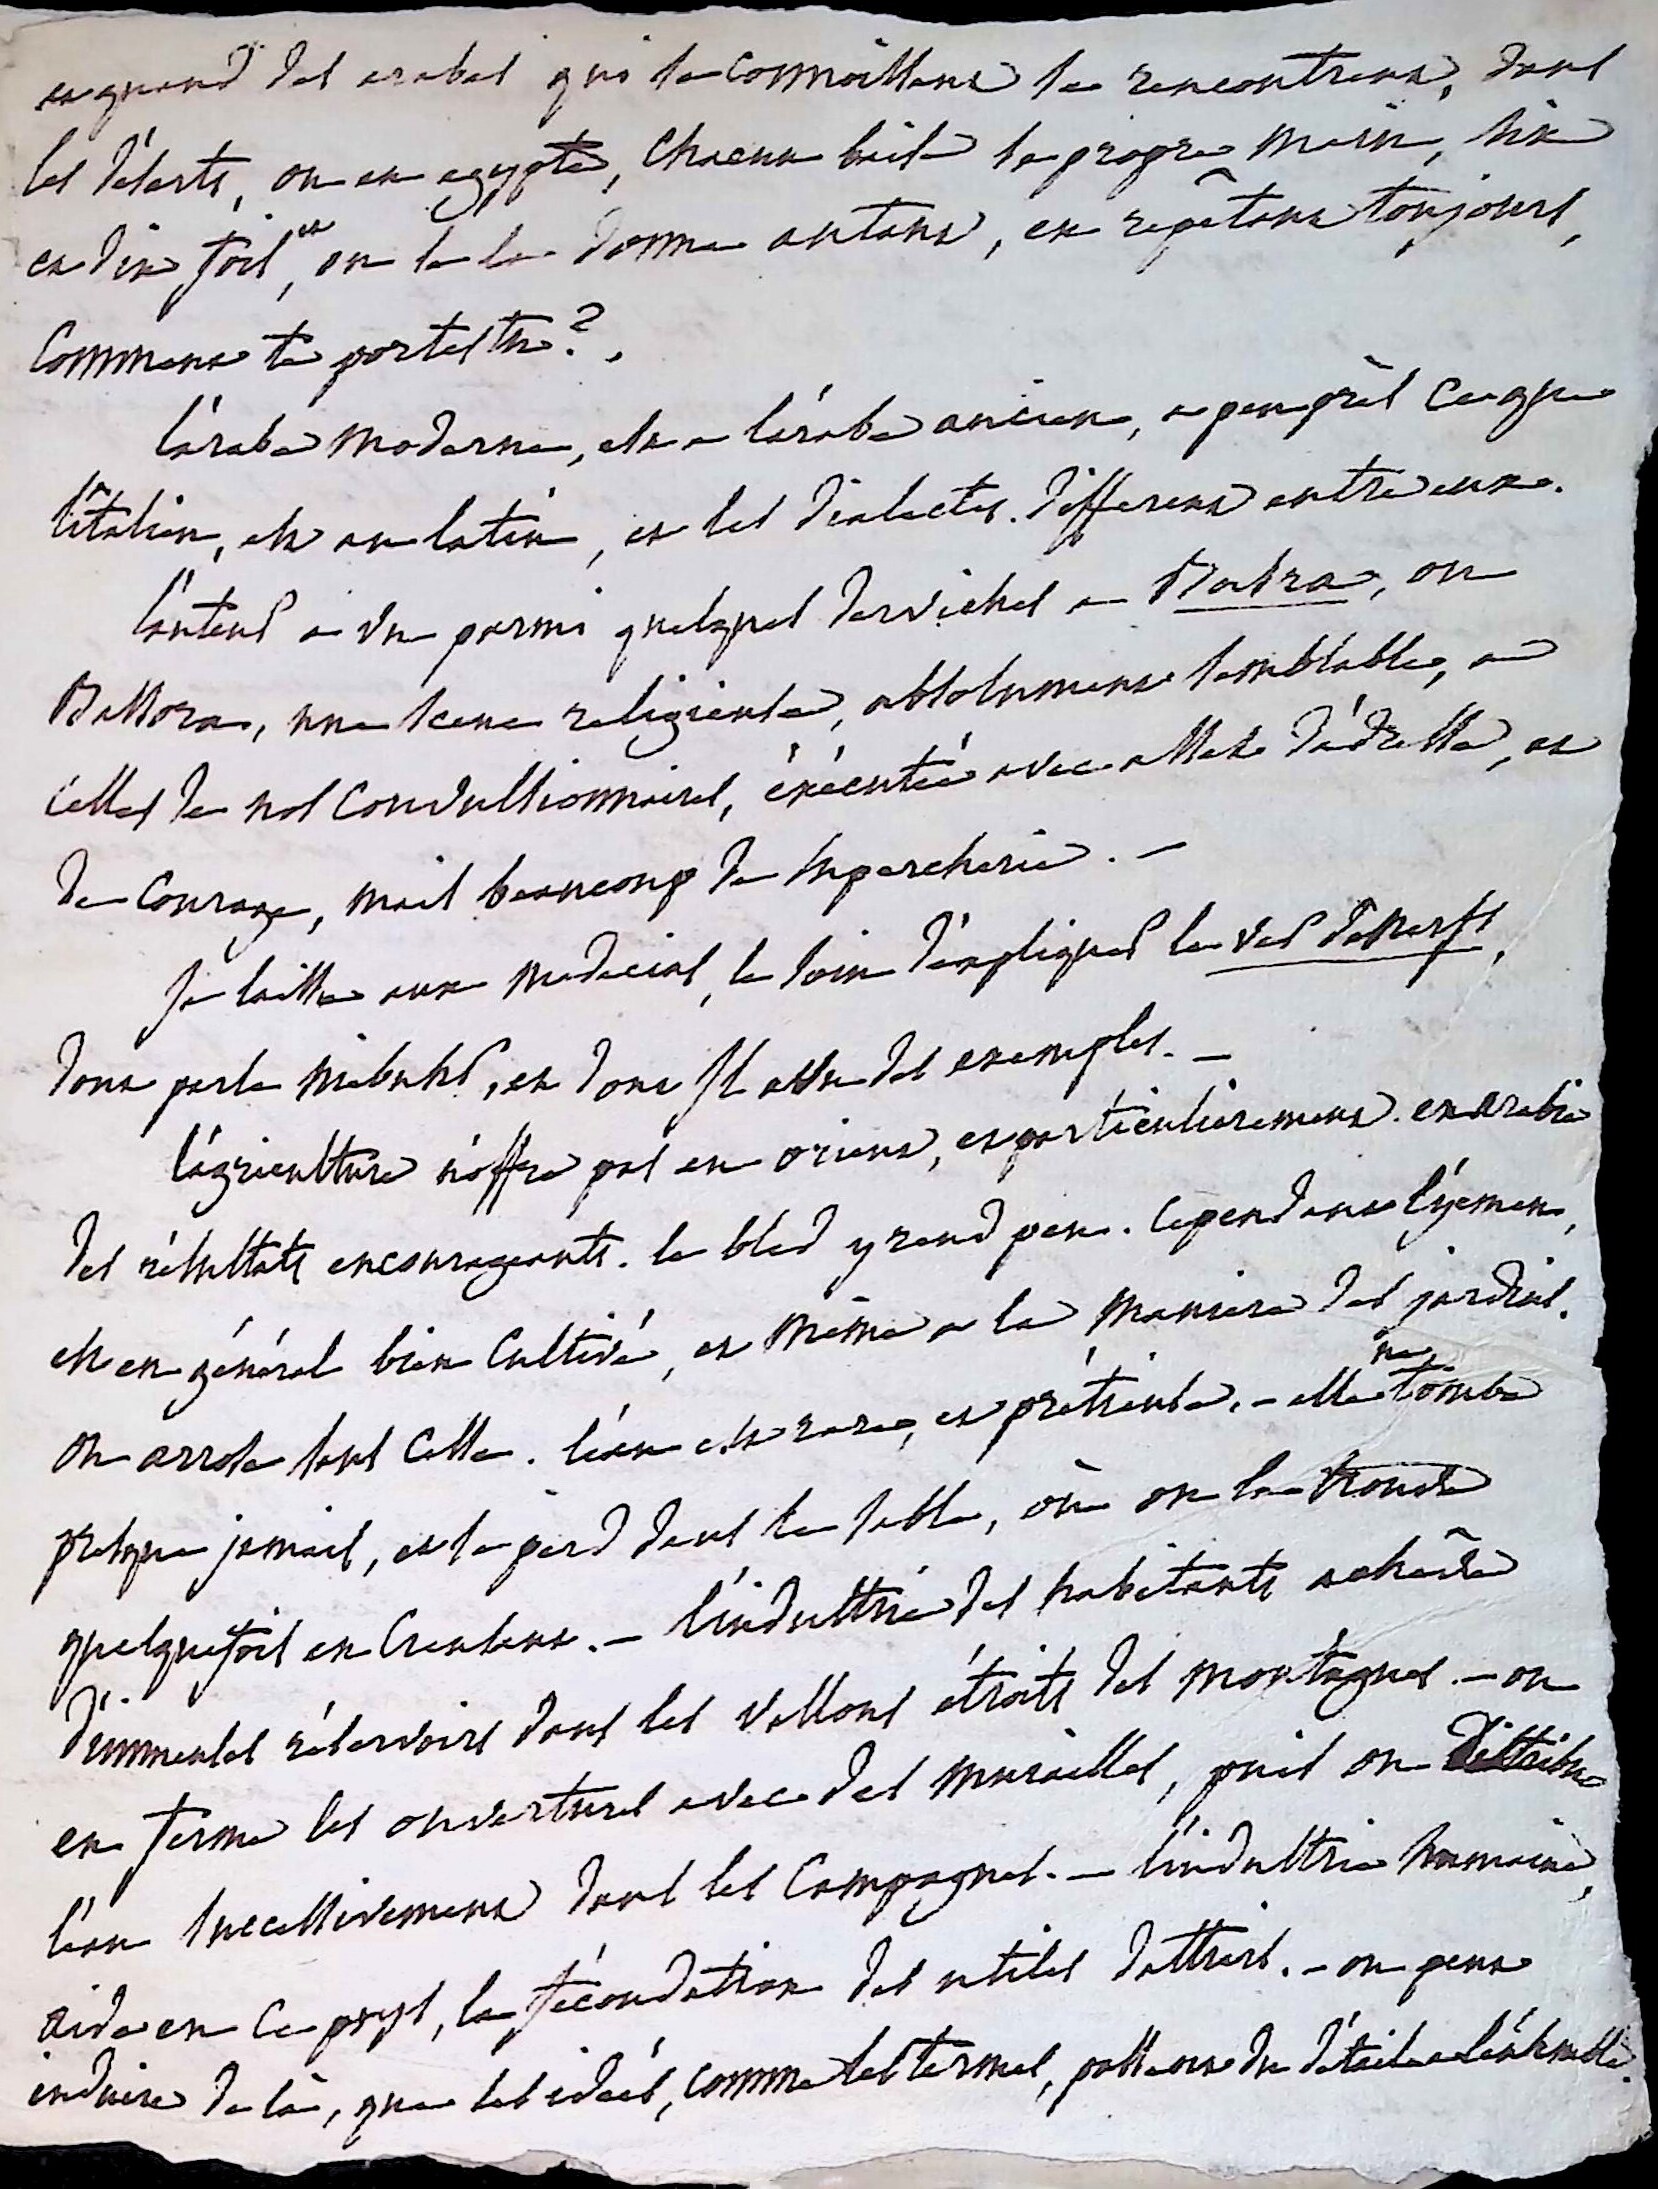 et quand des arabes qui se connoissent se rencontrent, dans
les déserts, ou en egypte, chacun baise sa propre main, six
ou dix fois, ou se la donne autant, en repêtant toujours,
Comment te portestu?.
l'arabe moderne, est a l'arabe ancien, a peu près ce que
l'italien, est au latin, et les dialectes different entre eux.
l'auteur a vu parmi quelques derviches a Basra, ou
Bassora, une scene religieuse, absolument semblable, a
celles de nos convulsionnaires, éxécutée avec assez d'adresse, et
de courage, mais beaucoup de supercherie. —
Je laisse aux medecins, le soin d'expliquer le ver de nerfs,
dont parle Niebuhr, et dont Il a vu des exemples. —
l'agriculture n'offre pas en orient, et particulierement en arabie
des résultats encourageants. le bled y rend peu. cependant l'yemen,
est en général bien cultivé, et même a la maniere des jardins.
on arrose sans cesse. l'eau est rare, et prétieuse. — elle ne tombe
presque jamais, et se perd dans le sable, où on la trouve
quelquefois en creusant. — l'industrie des habitants
d'immenses réservoirs dans les vallons étroits des montagnes. — on
en ferme les ouvertures avec des murailles, puis on distribue
l'eau successivement dans les campagnes. — l'industrie humaine,
aide en ce pays, la fécondation des utiles dattiers. — on peut
induire de là, que les idées, comme les termes, passent du détail a l'ensemble.